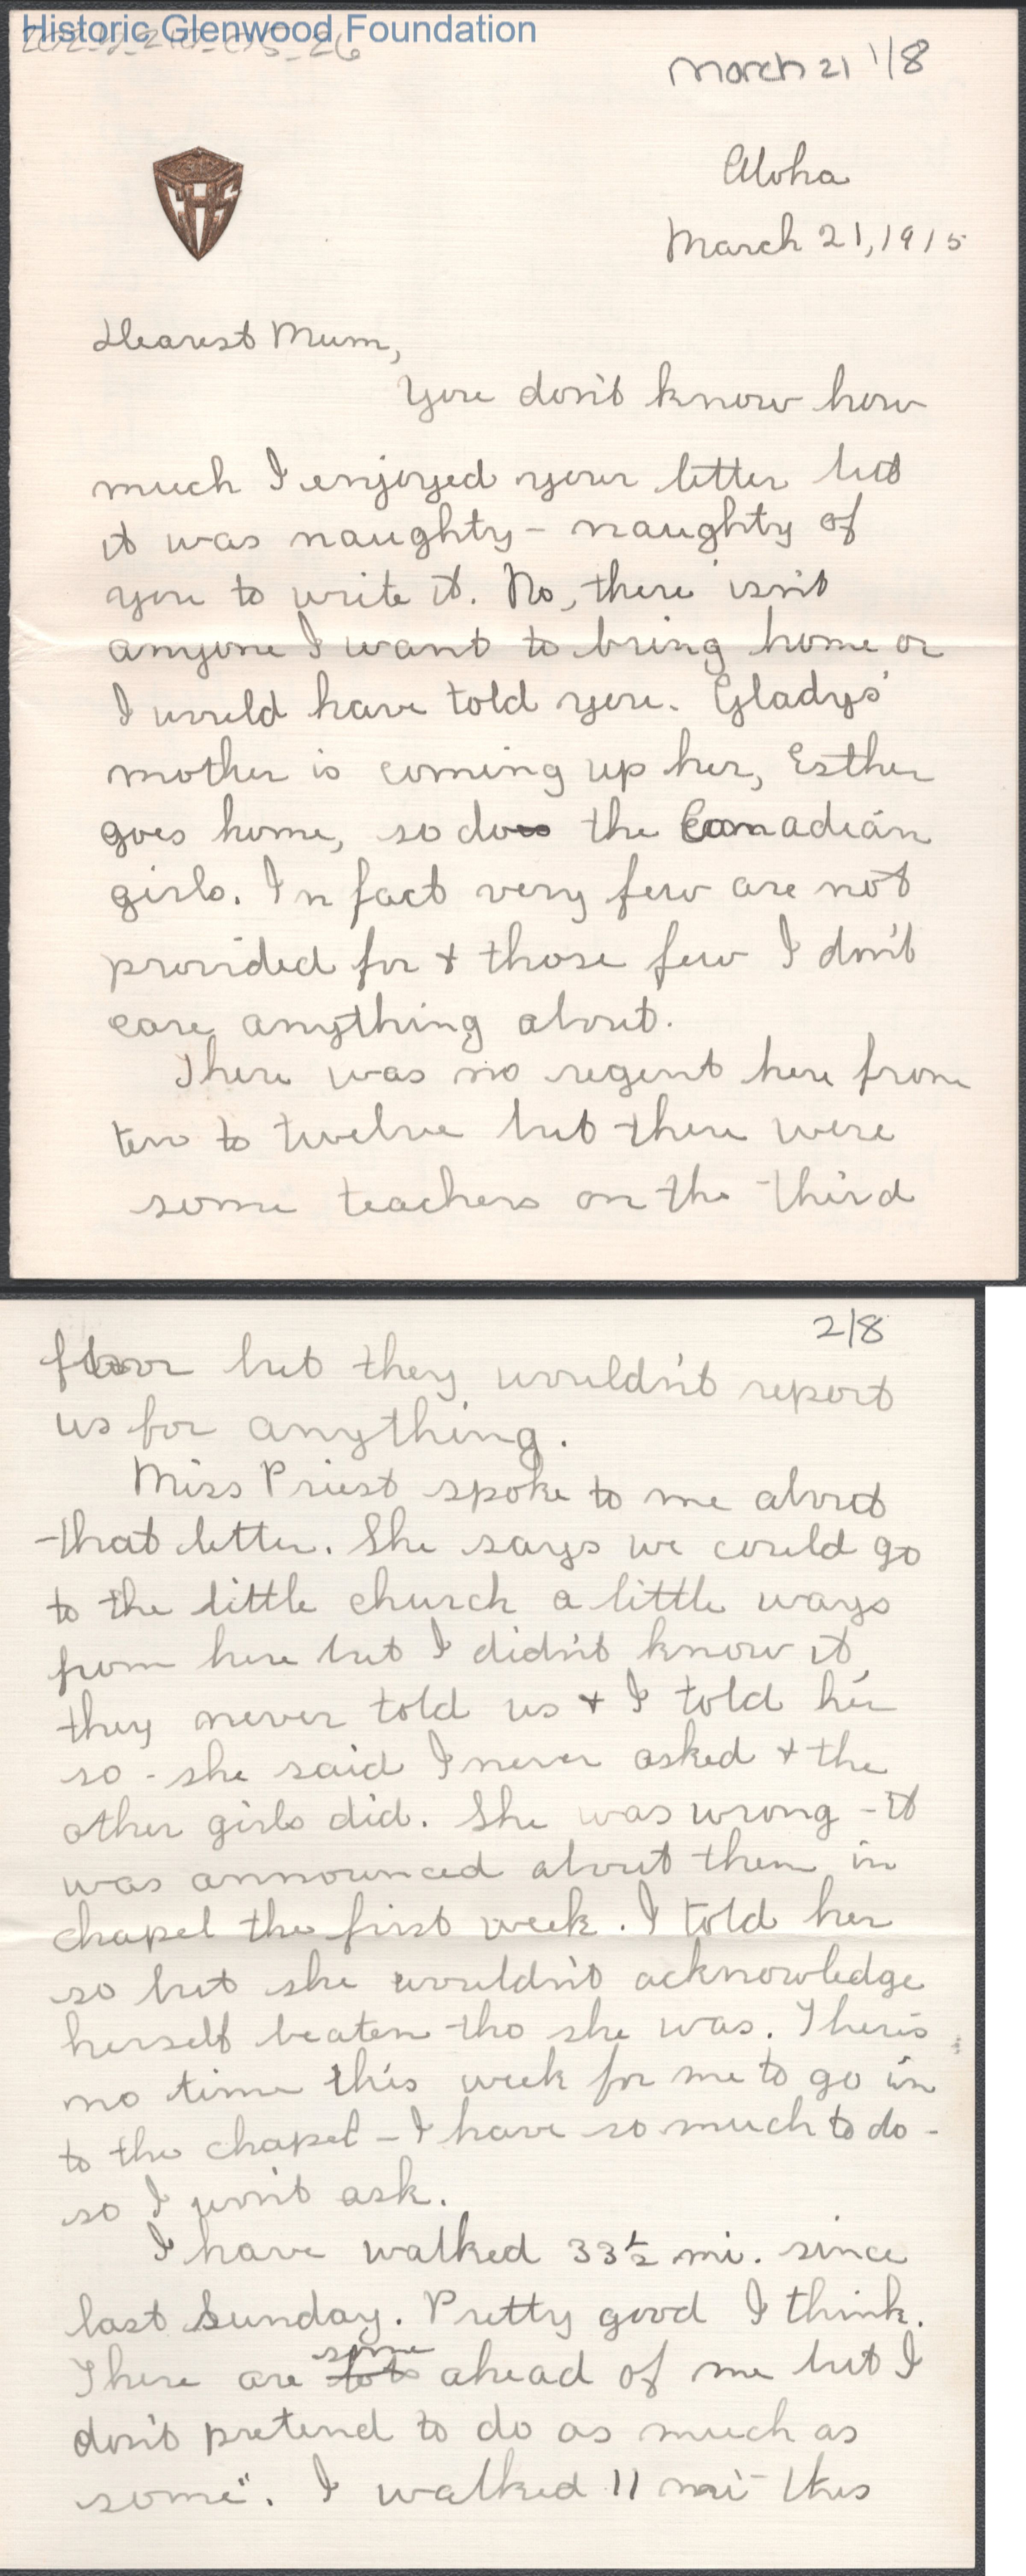 Historic Glenwood Foundation
March 21 1/8
CHS
Aloha
March 21, 1915
Dearest Mum,
You don't know how
much I enjoyed your letter but
it was naughty - naughty of
you to write it. No, there isn't
anyone I want to bring home or
I would have told you. Gladys'
mother is coming up her, Esther
goes home, so do the Canadian
girls. In fact very few are not
provided for + those few I don't
care anything about.
There was no regent here from
ten to twelve but there were
some teachers on the third
2/8
floor but they wouldn't report
us for anything.
Miss Priest spoke to me about
that letter. She says we could go
to the little church a little ways
from here but I didn't know it
they never told us + I told her
so - she said I never asked + the
other girls did. She was wrong - it
was announced about them in
chapel the first week. I told her
so but she wouldn't acknowledge
herself beaten tho she was. There's
no time this week for me to go in
to the chapel - I have so much to do -
so I won't ask.
I have walked 33 1/2 mi. since
last Sunday. Pretty good I think.
There are some lots ahead of me but I
don't pretend to do as much as
"some". I walked 11 mi this